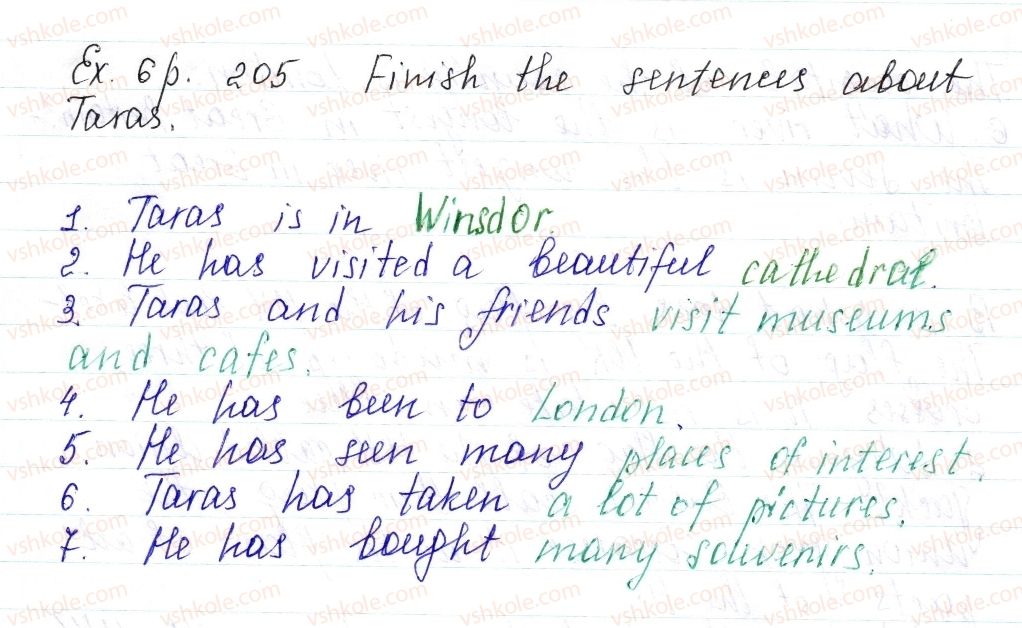 Ex. 6 p. 205 Finish the sentences about
Taras.
1. Taras is in Winsdor.
2. He has visited a beautiful cathedral.
3. Taras and his friends visit museums
and cafes.
4. He has been to London.
5. He has seen many places of interest.
6. Taras has taken a lot of pictures.
7. He has bought many souvenirs.